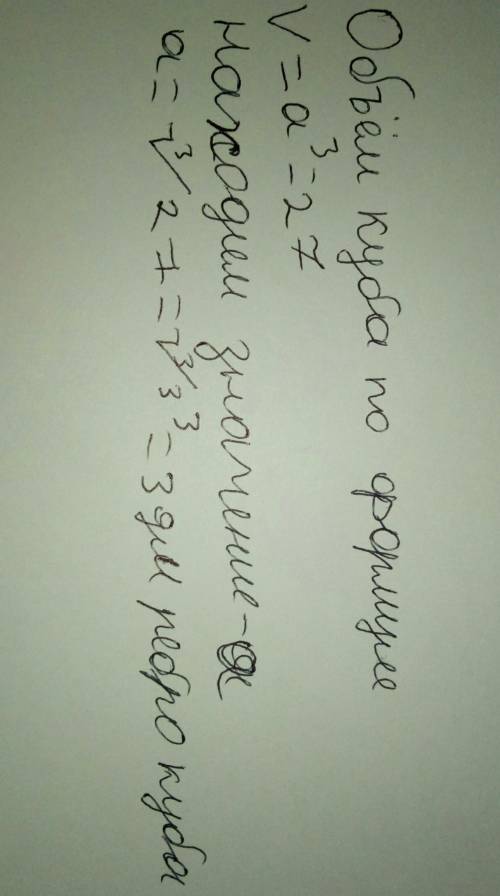 Объём куба по формуле
V = a³ = 27
Находим значение - a
a = ∛27 = ∛3³ = 3 дм ребро куба